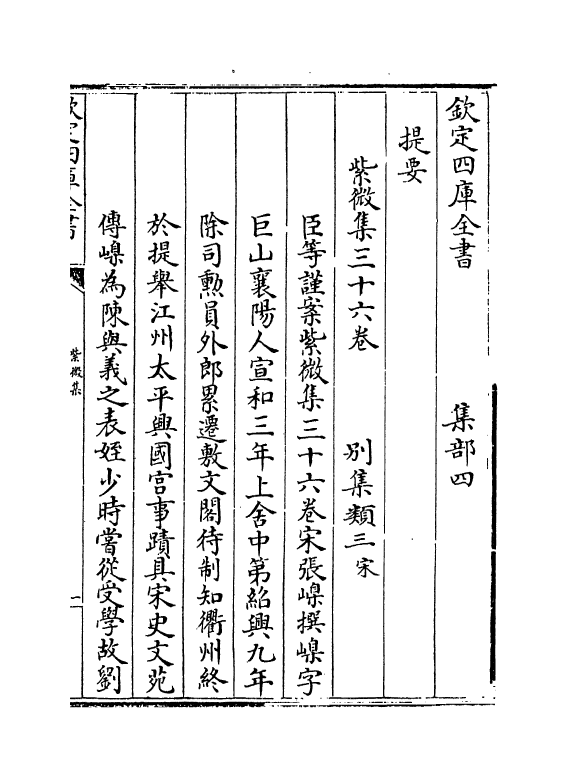 欽定四庫全書　集部四
提要
紫微集三十六卷　別集類三宋
臣等謹案紫微集三十六卷宋張嵲撰嵲字
巨山襄陽人宣和三年上舍中第紹興九年
除司勲員外郎累遷敷文閣待制知衢州終
於提舉江州太平興國宫事蹟具宋史文苑
傳嵲為陳與義之表姪少時嘗從受學故劉
欽定四庫全書
紫微集
一